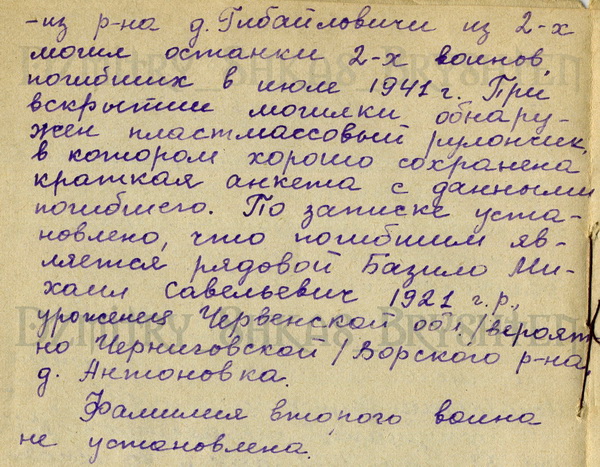 -из р-на д. Глбайловичи из 2-х
могил останки 2-х воинов,
погибших в июле 1941 г. При
вскрытии могилки обнару-
жен пластмассовый рулончик,
в котором хорошо сохранена
краткая анкета с данными
погибшего. По записке уста-
новлено, что погибшим яв-
ляется рядовой Базило Ми-
хаил Савельевич 1921 г.р.,
уроженец Червенской об. /вероят
но Черниговской/ Ворского р-на,
д. Антоновка.
Фамилия второго воина
не установлена.
DZMITRY_BARAS_BRYSHTEN